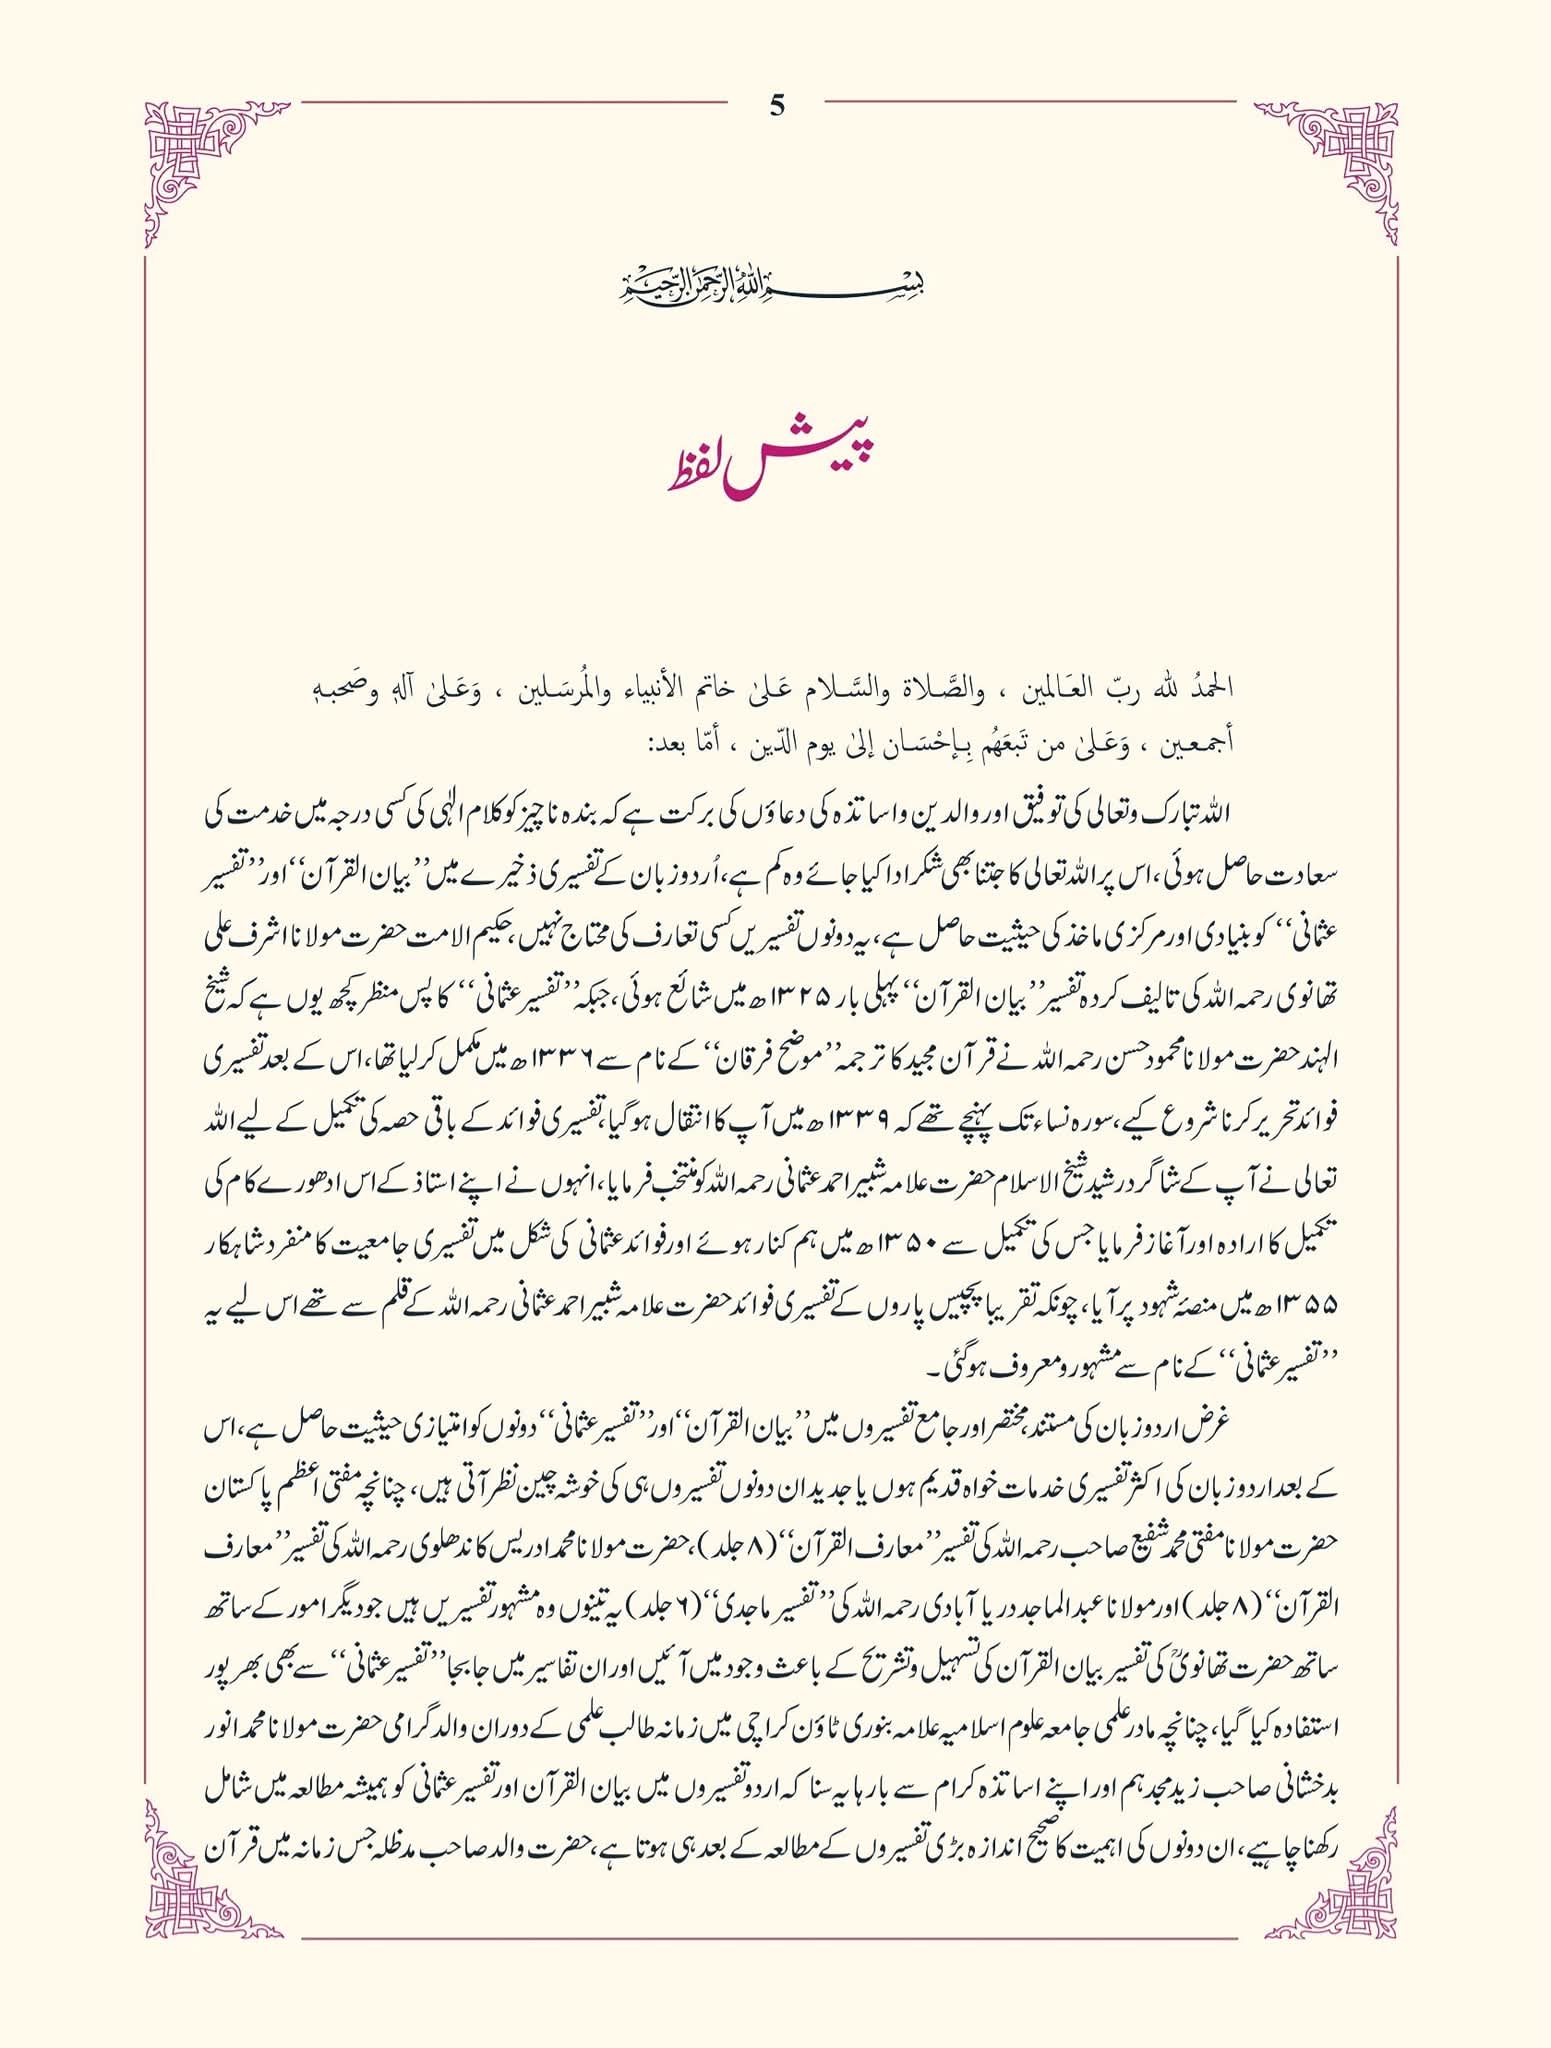 5
بِسْمِ اللهِ الرَّحْمٰنِ الرَّحِيْمِ
پیش لفظ
الحمدُ لله ربّ العَالمين ، والصَّلاة والسَّلام عَلىٰ خاتم الأنبياء والمُرسَلين ، وَعَلىٰ آلهٖ وصَحبهٖ
أجمعين ، وَعَلىٰ من تَبعَهُم بِإحْسَان إلىٰ يوم الدّين ، أمّا بعد:
اللہ تبارک وتعالی کی توفیق اور والدین واساتذہ کی دعاؤں کی برکت ہے کہ بندہ ناچیز کو کلام الٰہی کی کسی درجہ میں خدمت کی
سعادت حاصل ہوئی، اس پر اللہ تعالی کا جتنا بھی شکر ادا کیا جائے وہ کم ہے، اُردو زبان کے تفسیری ذخیرے میں ’’بیان القرآن‘‘ اور ’’تفسیر
عثمانی‘‘ کو بنیادی اور مرکزی ماخذ کی حیثیت حاصل ہے، یہ دونوں تفسیریں کسی تعارف کی محتاج نہیں، حکیم الامت حضرت مولانا اشرف علی
تھانوی رحمہ اللہ کی تالیف کردہ تفسیر ’’بیان القرآن‘‘ پہلی بار ۱۳۲۵ھ میں شائع ہوئی، جبکہ ’’تفسیر عثمانی‘‘ کا پس منظر کچھ یوں ہے کہ شیخ
الہند حضرت مولانا محمود حسن رحمہ اللہ نے قرآن مجید کا ترجمہ ’’موضح فرقان‘‘ کے نام سے ۱۳۳۶ھ میں مکمل کر لیا تھا، اس کے بعد تفسیری
فوائد تحریر کرنا شروع کیے، سورہ نساء تک پہنچے تھے کہ ۱۳۳۹ھ میں آپ کا انتقال ہوگیا، تفسیری فوائد کے باقی حصہ کی تکمیل کے لیے اللہ
تعالی نے آپ کے شاگرد رشید شیخ الاسلام حضرت علامہ شبیر احمد عثمانی رحمہ اللہ کو منتخب فرمایا، انہوں نے اپنے استاذ کے اس ادھورے کام کی
تکمیل کا ارادہ اور آغاز فرمایا جس کی تکمیل سے ۱۳۵۰ھ میں ہم کنار ہوئے اور فوائد عثمانی کی شکل میں تفسیری جامعیت کا منفرد شاہکار
۱۳۵۵ھ میں منصۂ شہود پر آیا، چونکہ تقریبا پچیس پاروں کے تفسیری فوائد حضرت علامہ شبیر احمد عثمانی رحمہ اللہ کے قلم سے تھے اس لیے یہ
’’تفسیر عثمانی‘‘ کے نام سے مشہور و معروف ہوگئی۔
غرض اردو زبان کی مستند، مختصر اور جامع تفسیروں میں ’’بیان القرآن‘‘ اور ’’تفسیر عثمانی‘‘ دونوں کو امتیازی حیثیت حاصل ہے، اس
کے بعد اردو زبان کی اکثر تفسیری خدمات خواہ قدیم ہوں یا جدید ان دونوں تفسیروں ہی کی خوشہ چین نظر آتی ہیں، چنانچہ مفتی اعظم پاکستان
حضرت مولانا مفتی محمد شفیع صاحب رحمہ اللہ کی تفسیر ’’معارف القرآن‘‘ (۸ جلد)، حضرت مولانا محمد ادریس کاندھلوی رحمہ اللہ کی تفسیر ’’معارف
القرآن‘‘ (۸ جلد) اور مولانا عبد الماجد دریا آبادی رحمہ اللہ کی ’’تفسیر ماجدی‘‘ (۶ جلد) یہ تینوں وہ مشہور تفسیریں ہیں جو دیگر امور کے ساتھ
ساتھ حضرت تھانویؒ کی تفسیر بیان القرآن کی تسہیل وتشریح کے باعث وجود میں آئیں اور ان تفاسیر میں جابجا ’’تفسیر عثمانی‘‘ سے بھی بھرپور
استفادہ کیا گیا، چنانچہ مادر علمی جامعہ علوم اسلامیہ علامہ بنوری ٹاؤن کراچی میں زمانہ طالب علمی کے دوران والد گرامی حضرت مولانا محمد انور
بدخشانی صاحب زید مجدہم اور اپنے اساتذہ کرام سے بارہا یہ سنا کہ اردو تفسیروں میں بیان القرآن اور تفسیر عثمانی کو ہمیشہ مطالعہ میں شامل
رکھنا چاہیے، ان دونوں کی اہمیت کا صحیح اندازہ بڑی تفسیروں کے مطالعہ کے بعد ہی ہوتا ہے، حضرت والد صاحب مدظلہ جس زمانہ میں قرآن